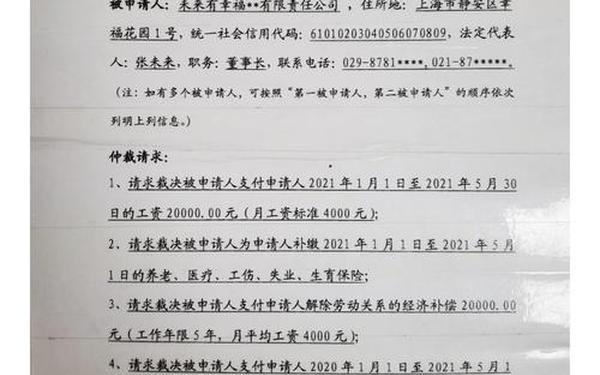 被申请人：未来有幸福**有限责任公司，住所地：上海市静安区幸
福花园1号，统一社会信用代码：61010203040506070809，法定代表
人：张未来，职务：董事长，联系电话：029-8781****，021-87*****。
（注：如有多个被申请人，可按照“第一被申请人，第二被申请人”的顺序依次
列明上列信息。）
仲裁请求：
1、请求裁决被申请人支付申请人2021年1月1日至2021年5月30
日的工资20000.00元（月工资标准4000元）；
2、请求裁决被申请人为申请人补缴2021年1月1日至2021年5月
1日的养老、医疗、工伤、失业、生育保险；
3、请求裁决被申请人支付申请人解除劳动关系的经济补偿20000.00
元（工作年限5年，月平均工资4000元）；
4、请求裁决被申请人支付申请人2020年1月1日至2021年5月1